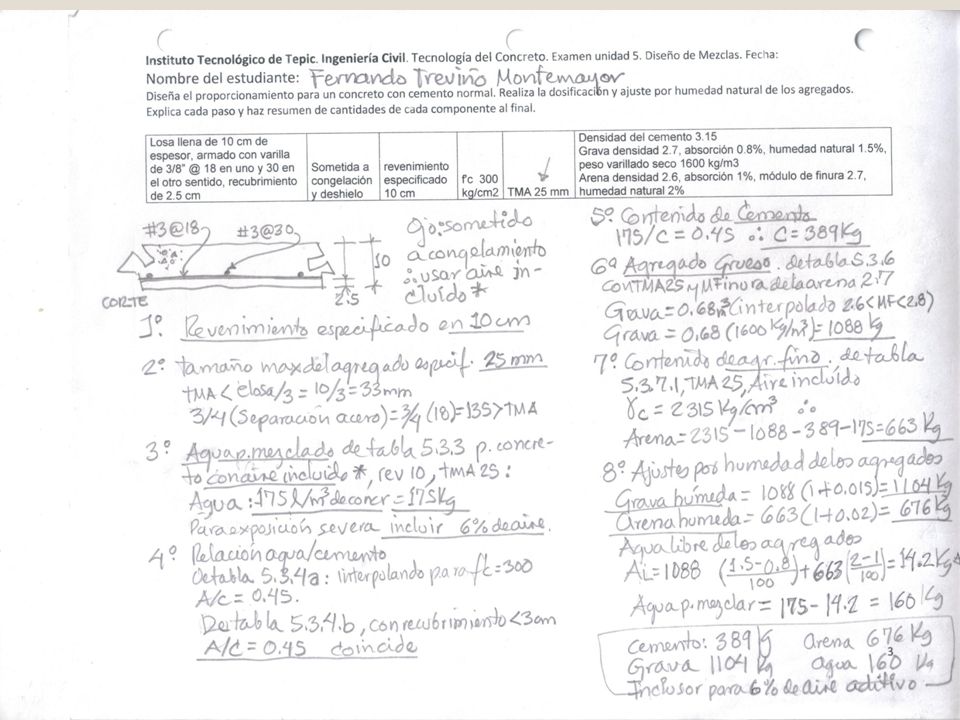 Instituto Tecnológico de Tepic. Ingeniería Civil. Tecnología del Concreto. Examen unidad 5. Diseño de Mezclas. Fecha:
Nombre del estudiante: Fernando Treviño Montemayor
Diseña el proporcionamiento para un concreto con cemento normal. Realiza la dosificación y ajuste por humedad natural de los agregados.
Explica cada paso y haz resumen de cantidades de cada componente al final.
Losa llena de 10 cm de
espesor, armado con varilla
de 3/8" @ 18 en uno y 30 en
el otro sentido, recubrimiento
de 2.5 cm
Sometida a
congelación
y deshielo
revenimiento
especificado
10 cm
f'c 300
kg/cm2
TMA 25 mm
Densidad del cemento 3.15
Grava densidad 2.7, absorción 0.8%, humedad natural 1.5%,
peso varillado seco 1600 kg/m3
Arena densidad 2.6, absorción 1%, módulo de finura 2.7,
humedad natural 2%
#3@18 #3@30
10
2.5
CORTE
Ojo: sometido
a congelamiento
∴ usar aire in-
cluído *
1º. Revenimiento especificado en 10 cm
2º tamaño max del agregado especif. 25 mm
TMA < elosa/3 = 10/3 = 33mm
3/4 (Separación acero) = 3/4 (18) = 135 > TMA
3º Agua p. mezclado de tabla 5.3.3 p. concre-
to con aire incluido *, rev 10, TMA 25:
Agua: 175 l/m³ de concr = 175 Kg
Para exposición severa incluir 6% de aire.
4º Relación agua/cemento
De tabla 5.3.4a: interpolando para f'c = 300
A/c = 0.45.
De tabla 5.3.4.b, con recubrimiento < 3cm
A/C = 0.45 coincide
5º. Contenido de Cemento
175/C = 0.45 ∴ C = 389 Kg
6º Agregado Grueso. de tabla 5.3.6
Con TMA 25 y MFinura de la arena 2.7
Grava = 0.68 m³ (interpolado 2.6<MF<2.8)
Grava = 0.68 (1600 Kg/m³) = 1088 Kg
7º Contenido de agr. fino. de tabla
5.3.7.1, TMA 25, Aire incluído
γc = 2315 Kg/cm³ ∴
Arena = 2315 - 1088 - 389 - 175 = 663 Kg
8º Ajustes por humedad de los agregados
Grava húmeda = 1088 (1+0.015) = 1104 Kg
arena humeda = 663 (1+0.02) = 676 Kg
Agua libre de los agregados
AL = 1088 (1.5-0.8/100) + 663 (2-1/100) = 14.2 Kg
Agua p. mezclar = 175 - 14.2 = 160 Kg
Cemento: 389 Kg Arena 676 Kg
Grava 1104 Kg agua 160 Kg
Inclusor para 6% de aire aditivo